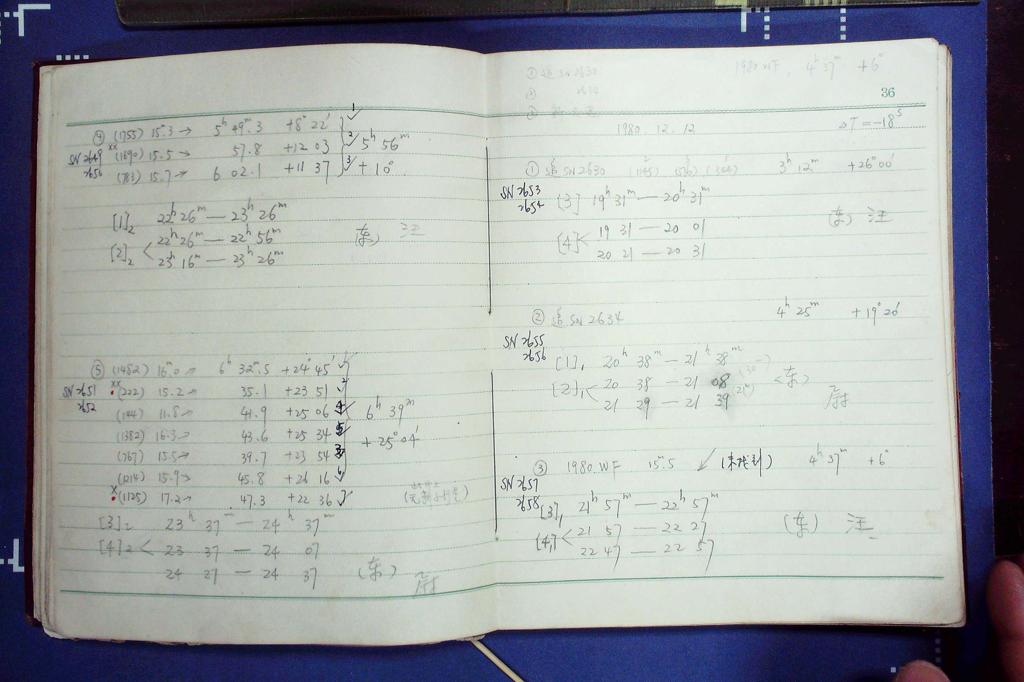 ④ (1755) 15.3 → 5ʰ 49ᵐ.3 +8° 22′ 1✓
SN 2649 xx (1690) 15.5 → 57.8 +12 03 2✓ 5ʰ 56ᵐ
2650 (783) 15.7 → 6 02.1 +11 37 3✓ +10°
[1]₂ 22ʰ 26ᵐ — 23ʰ 26ᵐ
[2]₂ < 22ʰ 26ᵐ — 22ʰ 56ᵐ (东) 汪
23ʰ 16ᵐ — 23ʰ 26ᵐ
⑤ (1482) 16.0 → 6ʰ 32ᵐ.5 +24° 45′
SN 2651 xx (222) 15.2 → 35.1 +23 51
2652 (144) 11.8 → 41.9 +25 06 6ʰ 39ᵐ
(1382) 16.3 → 43.6 +25 34 +25° 04′
(767) 15.5 → 39.7 +23 54
(1214) 15.9 → 45.8 +26 16
x (1125) 17.2 → 47.3 +22 36
[3]₂ 23ʰ 37ᵐ — 24ʰ 37ᵐ
[4]₂ < 23 37 — 24 07
24 27 — 24 37 (东) 尉
① 追 SN 2630 1980 WF, 4ʰ 37ᵐ +6°
36
1980.12.12 ΔT=-18ˢ
① 追 SN 2630 3ʰ 12ᵐ +26° 00′
SN 2653
2654 [3] 19ʰ 31ᵐ — 20ʰ 31ᵐ
(东) 汪
[4] < 19 31 — 20 01
20 21 — 20 31
② 追 SN 2634 4ʰ 25ᵐ +19° 20′
SN 2655
2656 [1]₁ 20ʰ 38ᵐ — 21ʰ 38ᵐ
[2]₁ < 20 38 — 21 08 (东)
21 29 — 21 39 尉
③ 1980 WF 15.5 (未找到) 4ʰ 37ᵐ +6°
SN 2657
2658 [3]₁ 21ʰ 57ᵐ — 22ʰ 57ᵐ
[4]₁ < 21 57 — 22 27 (东) 汪
22 47 — 22 57